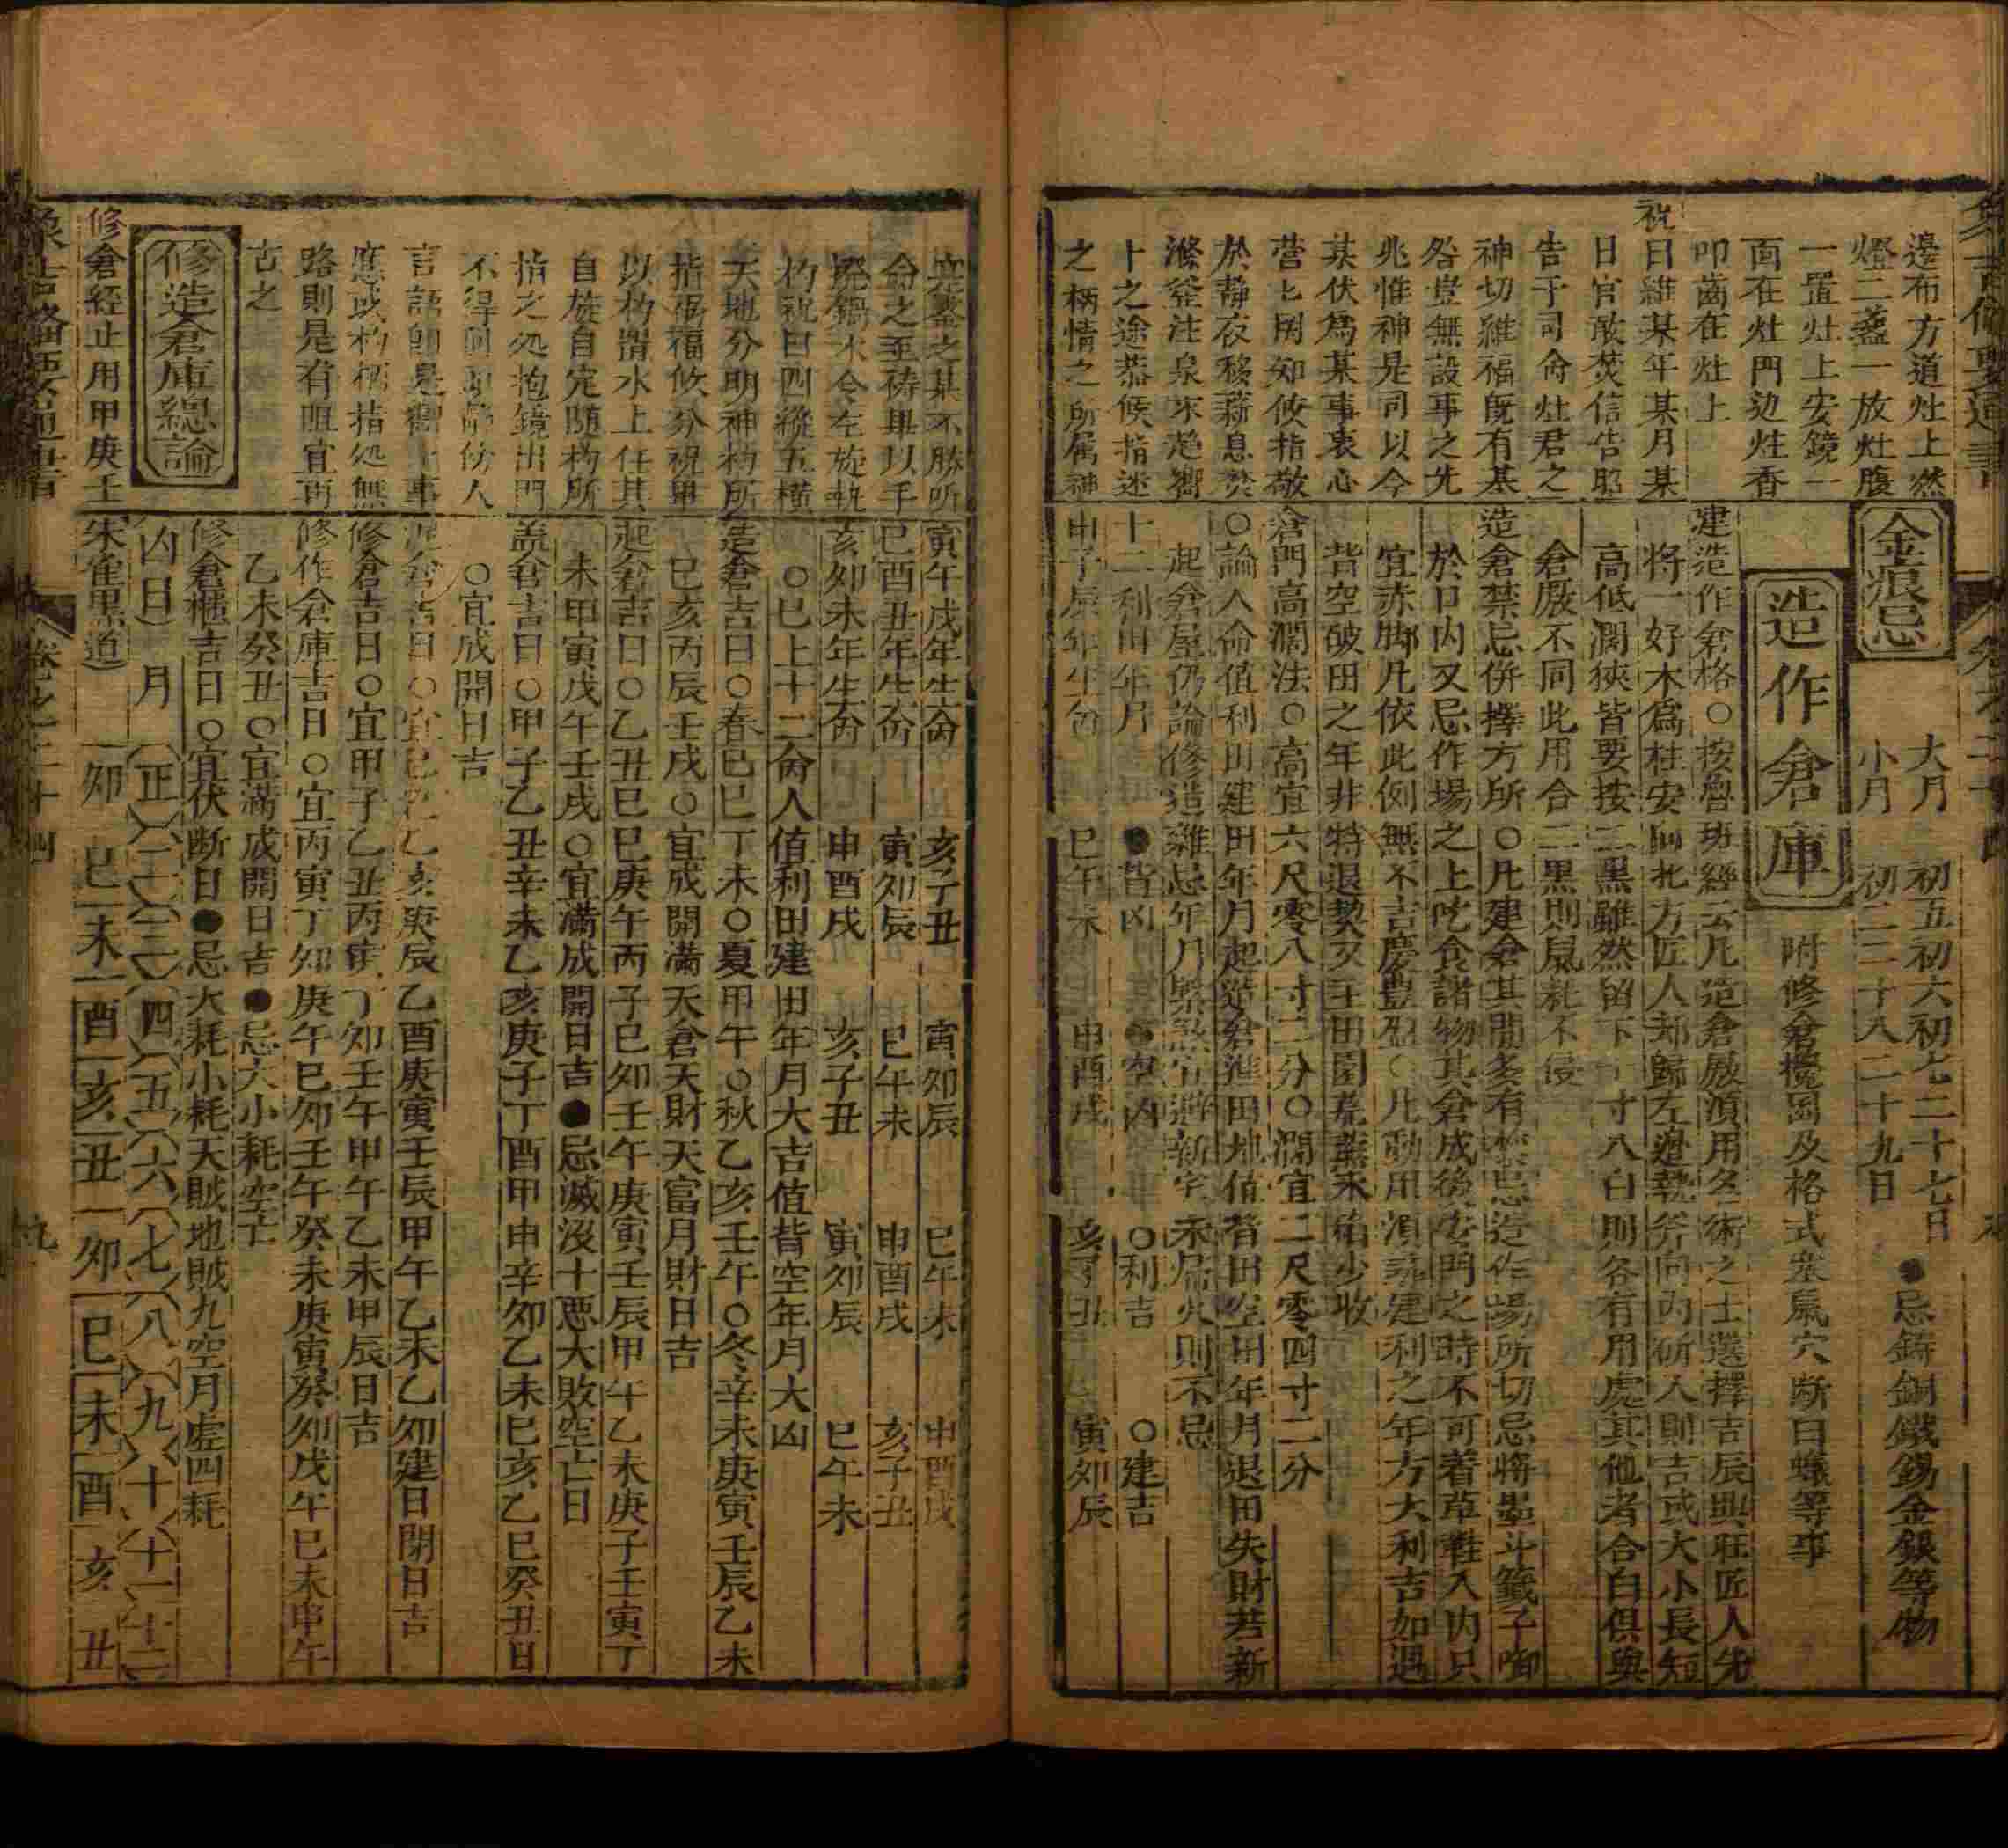 邊布方道灶上燃
燈二盞一放灶腹
一置灶上安鏡一
面在灶門边炷香
叩齒在灶上
祝曰維某年某月某
日官敢焚信香昭
告于司命灶君之
神切維福既有基
咎豈無設事之先
兆惟神是司以今
某伏爲某事衷心
营匕罔知攸指敬
於静夜移薪息焚
滌釜注泉求趂嚮
卜之途恭候指迷
之柄情之所属神
金痕忌
大月 初五初六初七二十七日
小月 初二二十八二十九日
●忌鑄銅鐵錫金銀等物
造作倉庫
附修倉櫃固及格式塞鼠穴断白蟻等事
建造作倉格○按魯班經云凡造倉厫湏用名術之士選擇吉辰興旺匠人先
將一好木爲柱安向北方匠人却歸左邊執斧向內斫入則吉或大小長短
高低濶狹皆要按二黑雖然留下一寸八白則各有用處其他者合白俱與
倉厫不同此用合二黑則鼠耗不侵
造倉禁忌併擇方所○凡建倉其間多有禁忌造作場所切忌將墨斗籤子啣
於口内又忌作場之上吃食諸物其倉成後安門之時不可着草鞋入内只
宜赤脚凡依此例無不吉慶豊盈○凡動用湏尋建利之年方大利吉如遇
背空破田之年非特退契亥主田園荒蕪永陷少收
倉門高濶法○高宜六尺零八寸二分○濶宜二尺零四寸二分
○論人命值利田建田年月起造君進田地值背田空田年月退田失財若新
起倉屋仍論修造雜忌年月緊煞宜避新宅未居火則不忌
十二利田年月 ●背凶 ●空凶 ○利吉 ○建吉
申子辰年生命 巳午未 申酉戌 亥子丑 寅卯辰
寅午戌年生命 亥子丑 寅卯辰 巳午未 申酉戌
巳酉丑年生命 寅卯辰 巳午未 申酉戌 亥子丑
亥卯未年生命 申酉戌 亥子丑 寅卯辰 巳午未
○巳上十二命人值利田建田年月大吉值背空年月大凶
造倉吉日○春己巳丁未○夏甲午○秋乙亥壬午○冬辛未庚寅壬辰乙未
己亥丙辰壬戌○宜成開滿天倉天財天富月財日吉
起倉吉日○乙丑己巳庚午丙子己卯壬午庚寅壬辰甲午乙未庚子壬寅丁
未甲寅戊午壬戌○宜滿成開日吉●忌滅没十悪大敗空亡日
盖倉吉日○甲子乙丑辛未乙亥庚子丁酉甲申辛卯乙未己亥乙巳癸丑日
○宜成開日吉
修倉吉日○宜甲子乙丑丙寅丁卯壬午甲午乙未甲辰日吉
修作倉庫吉日○宜丙寅丁卯庚午己卯壬午癸未庚寅癸卯戊午己未申午
乙未癸丑○宜滿成開日吉●忌大小耗空亡
修倉櫃吉日○宜伏断日●忌大耗小耗天賊地賊九空月虚四耗
凶日 月 正 二 三 四 五 六 七 八 九 十 十一 十二
朱雀黑道 卯 巳 未 酉 亥 丑 卯 巳 未 酉 亥 丑
命之至祷畢以手
撓鍋水令左旋執
杓祝曰四縱五横
天地分明神杓所
指禍福攸分祝畢
以杓置水上任其
自旋自定随杓所
指之処抱鏡出門
不得回
言語即是
應或杓柄指処無
路則是有阻宜再
古之
修造倉庫總論
修倉經止用甲庚壬
卷之二十四
九